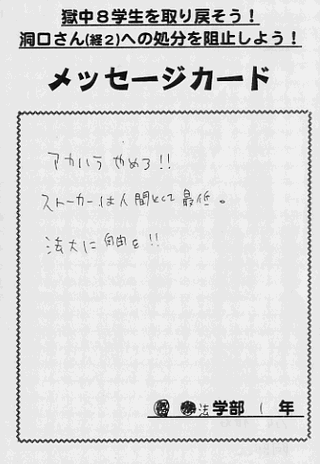 獄中８学生を取り戻そう！
洞口さん(経２)への処分を阻止しよう！
メッセージカード
アカハラ やめろ!!
ストーカーは人間として最低。
法大に自由を!!
法学部 1 年